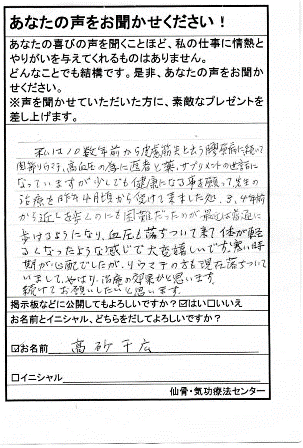 あなたの声をお聞かせください！
あなたの喜びの声を聞くことほど、私の仕事に情熱と
やりがいを与えてくれるものはありません。
どんなことでも結構です。是非、あなたの声をお聞か
せください。
※声を聞かせていただいた方に、素敵なプレゼントを
差し上げます。
私は10数年前から皮膚筋炎と云う膠原病に続いて
高血圧の為に医者と薬、サプリメントの世話に
なっていますが少しでも健康になる事を願って先生の
治療を昨年十月頃から受けてました処、3、4ヶ月前
から近しを歩くのにも困難だったのが、最近は普通に
歩けるようになり、血圧も落ちついて来て体が軽
るくなったような感じで大変嬉しいです。寒い時
期が心配でしたが、リウマチの方も現在落ちついて
いまして、やはり、治療の効果かと思います。
続けてお願いしたいと思います。
掲示板などに公開してもよろしいですか？☑はい□いいえ
お名前とイニシャル、どちらをだしてよろしいですか？
☑お名前 高砂千広
□イニシャル
仙骨・気功療法センター